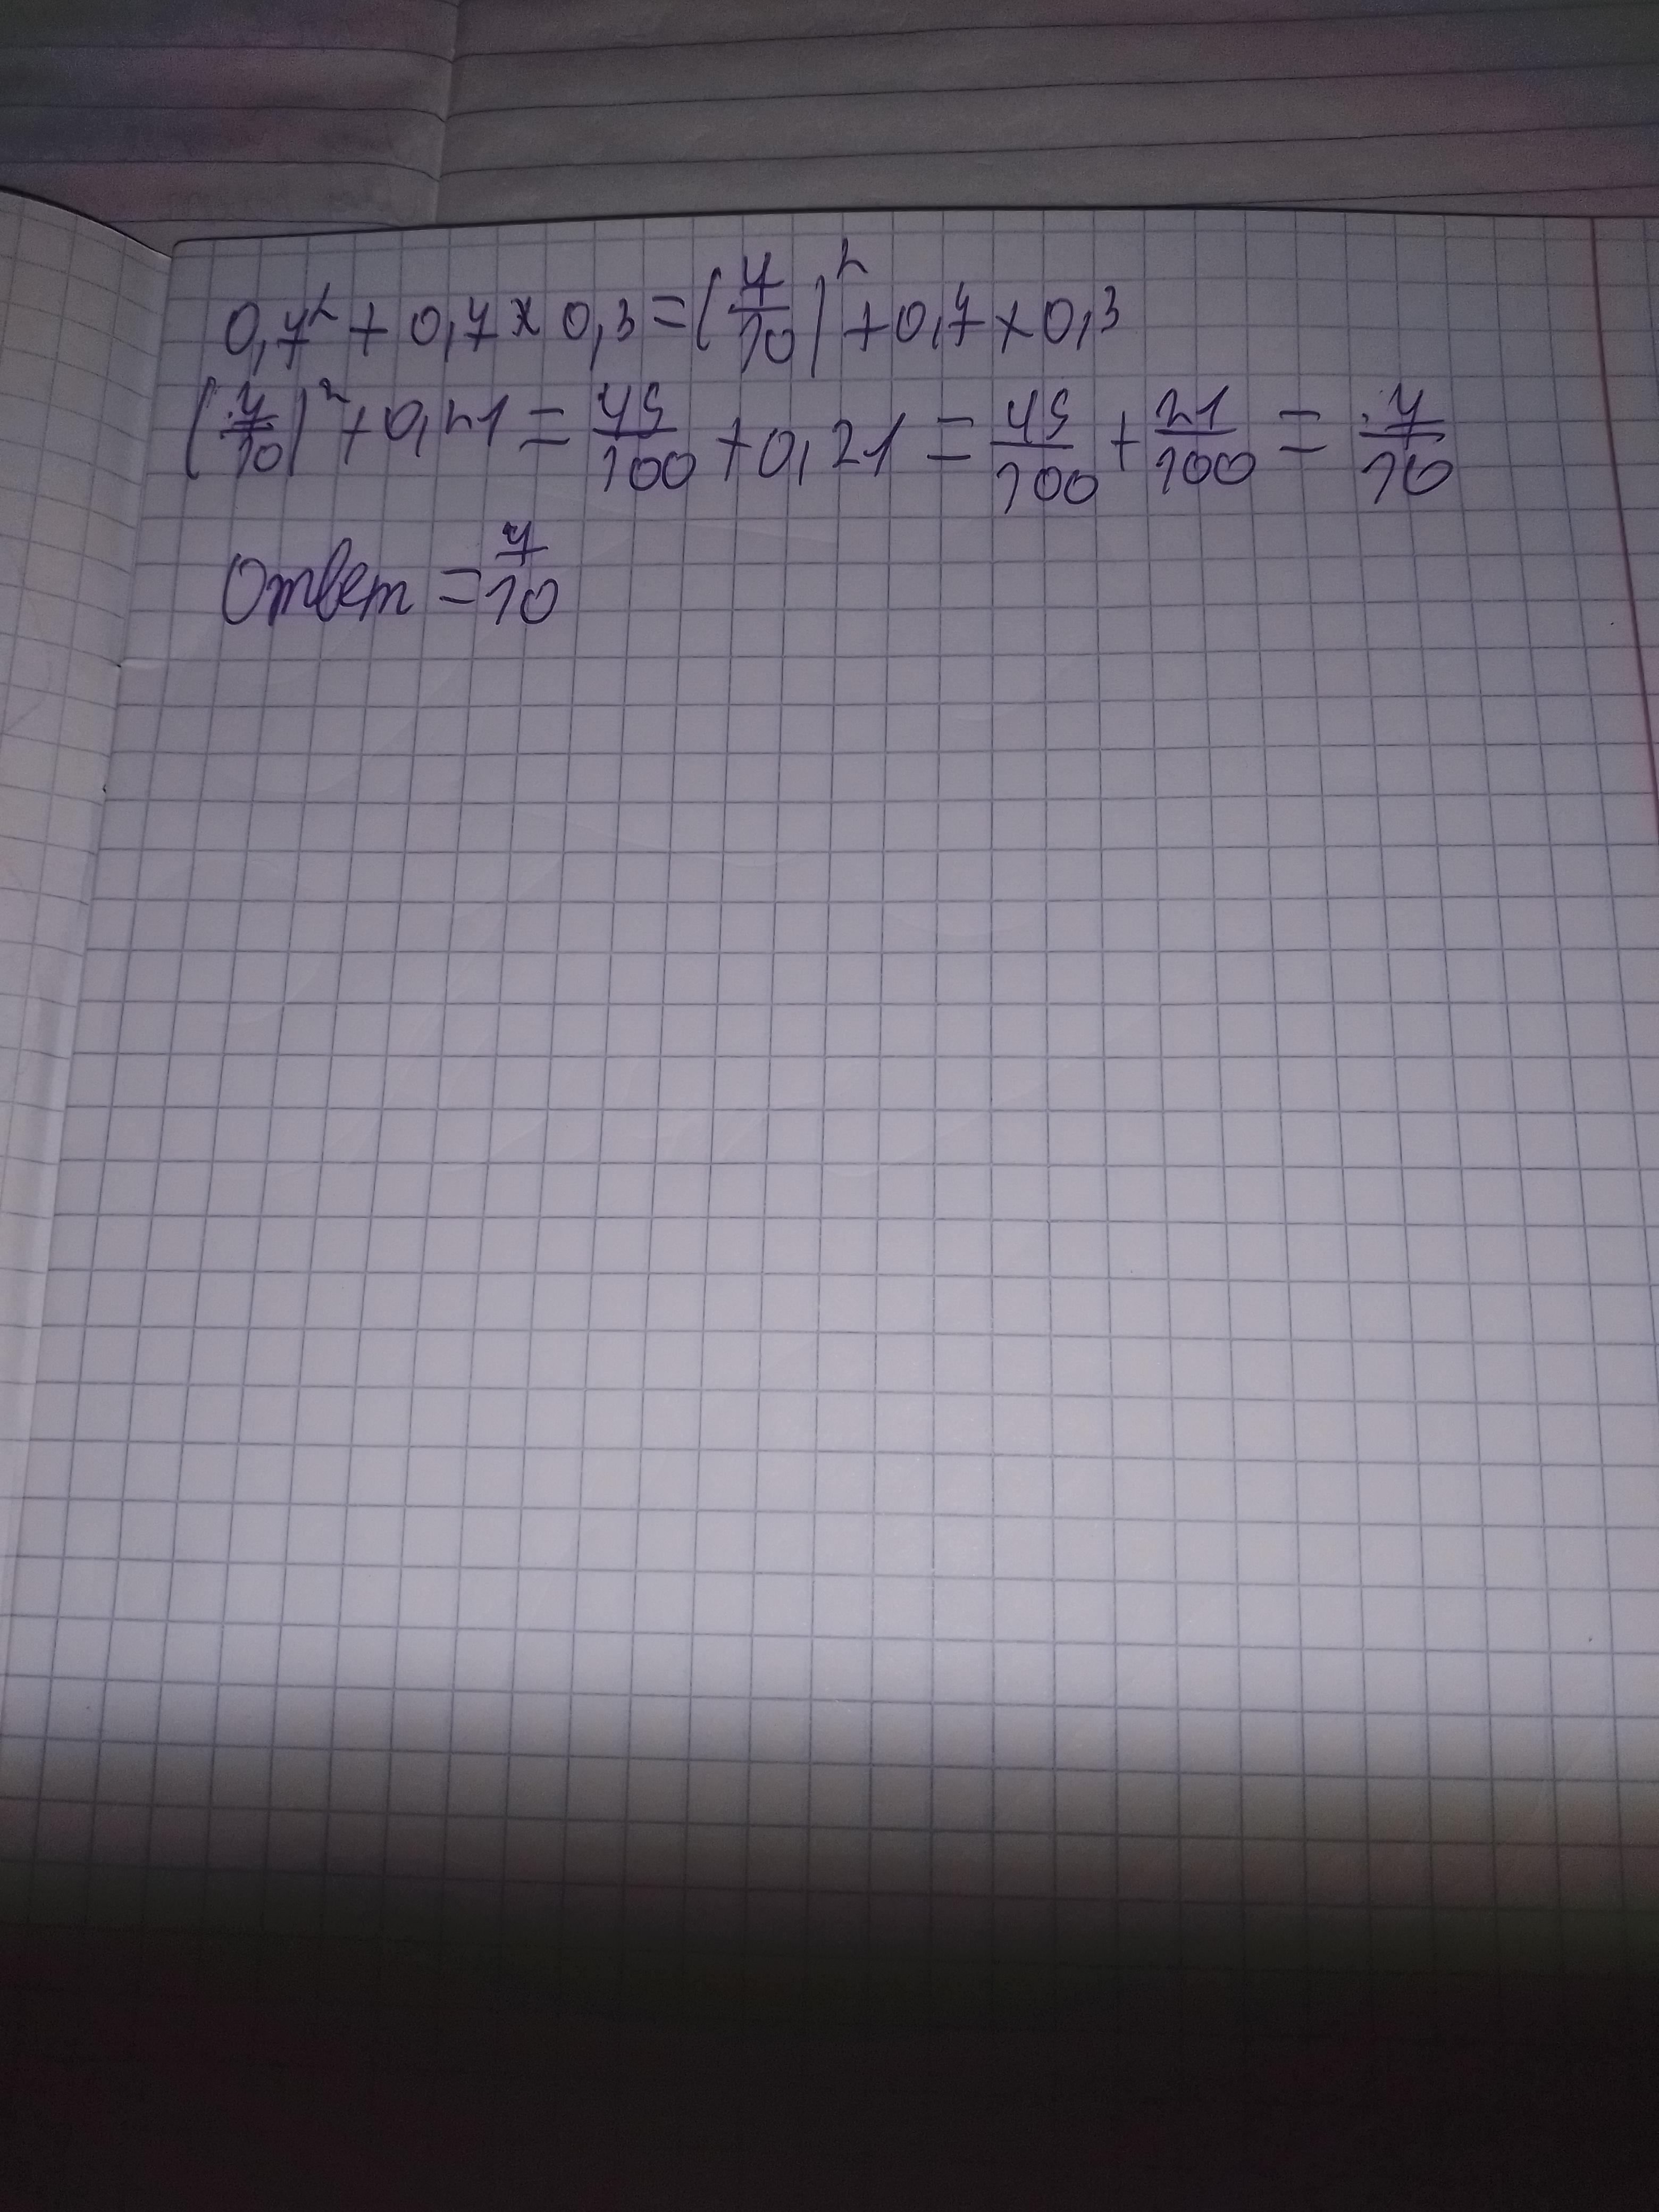 0,7² + 0,7 × 0,3 = (7/10)² + 0,7 × 0,3
(7/10)² + 0,21 = 49/100 + 0,21 = 49/100 + 21/100 = 7/10
Ответ = 7/10